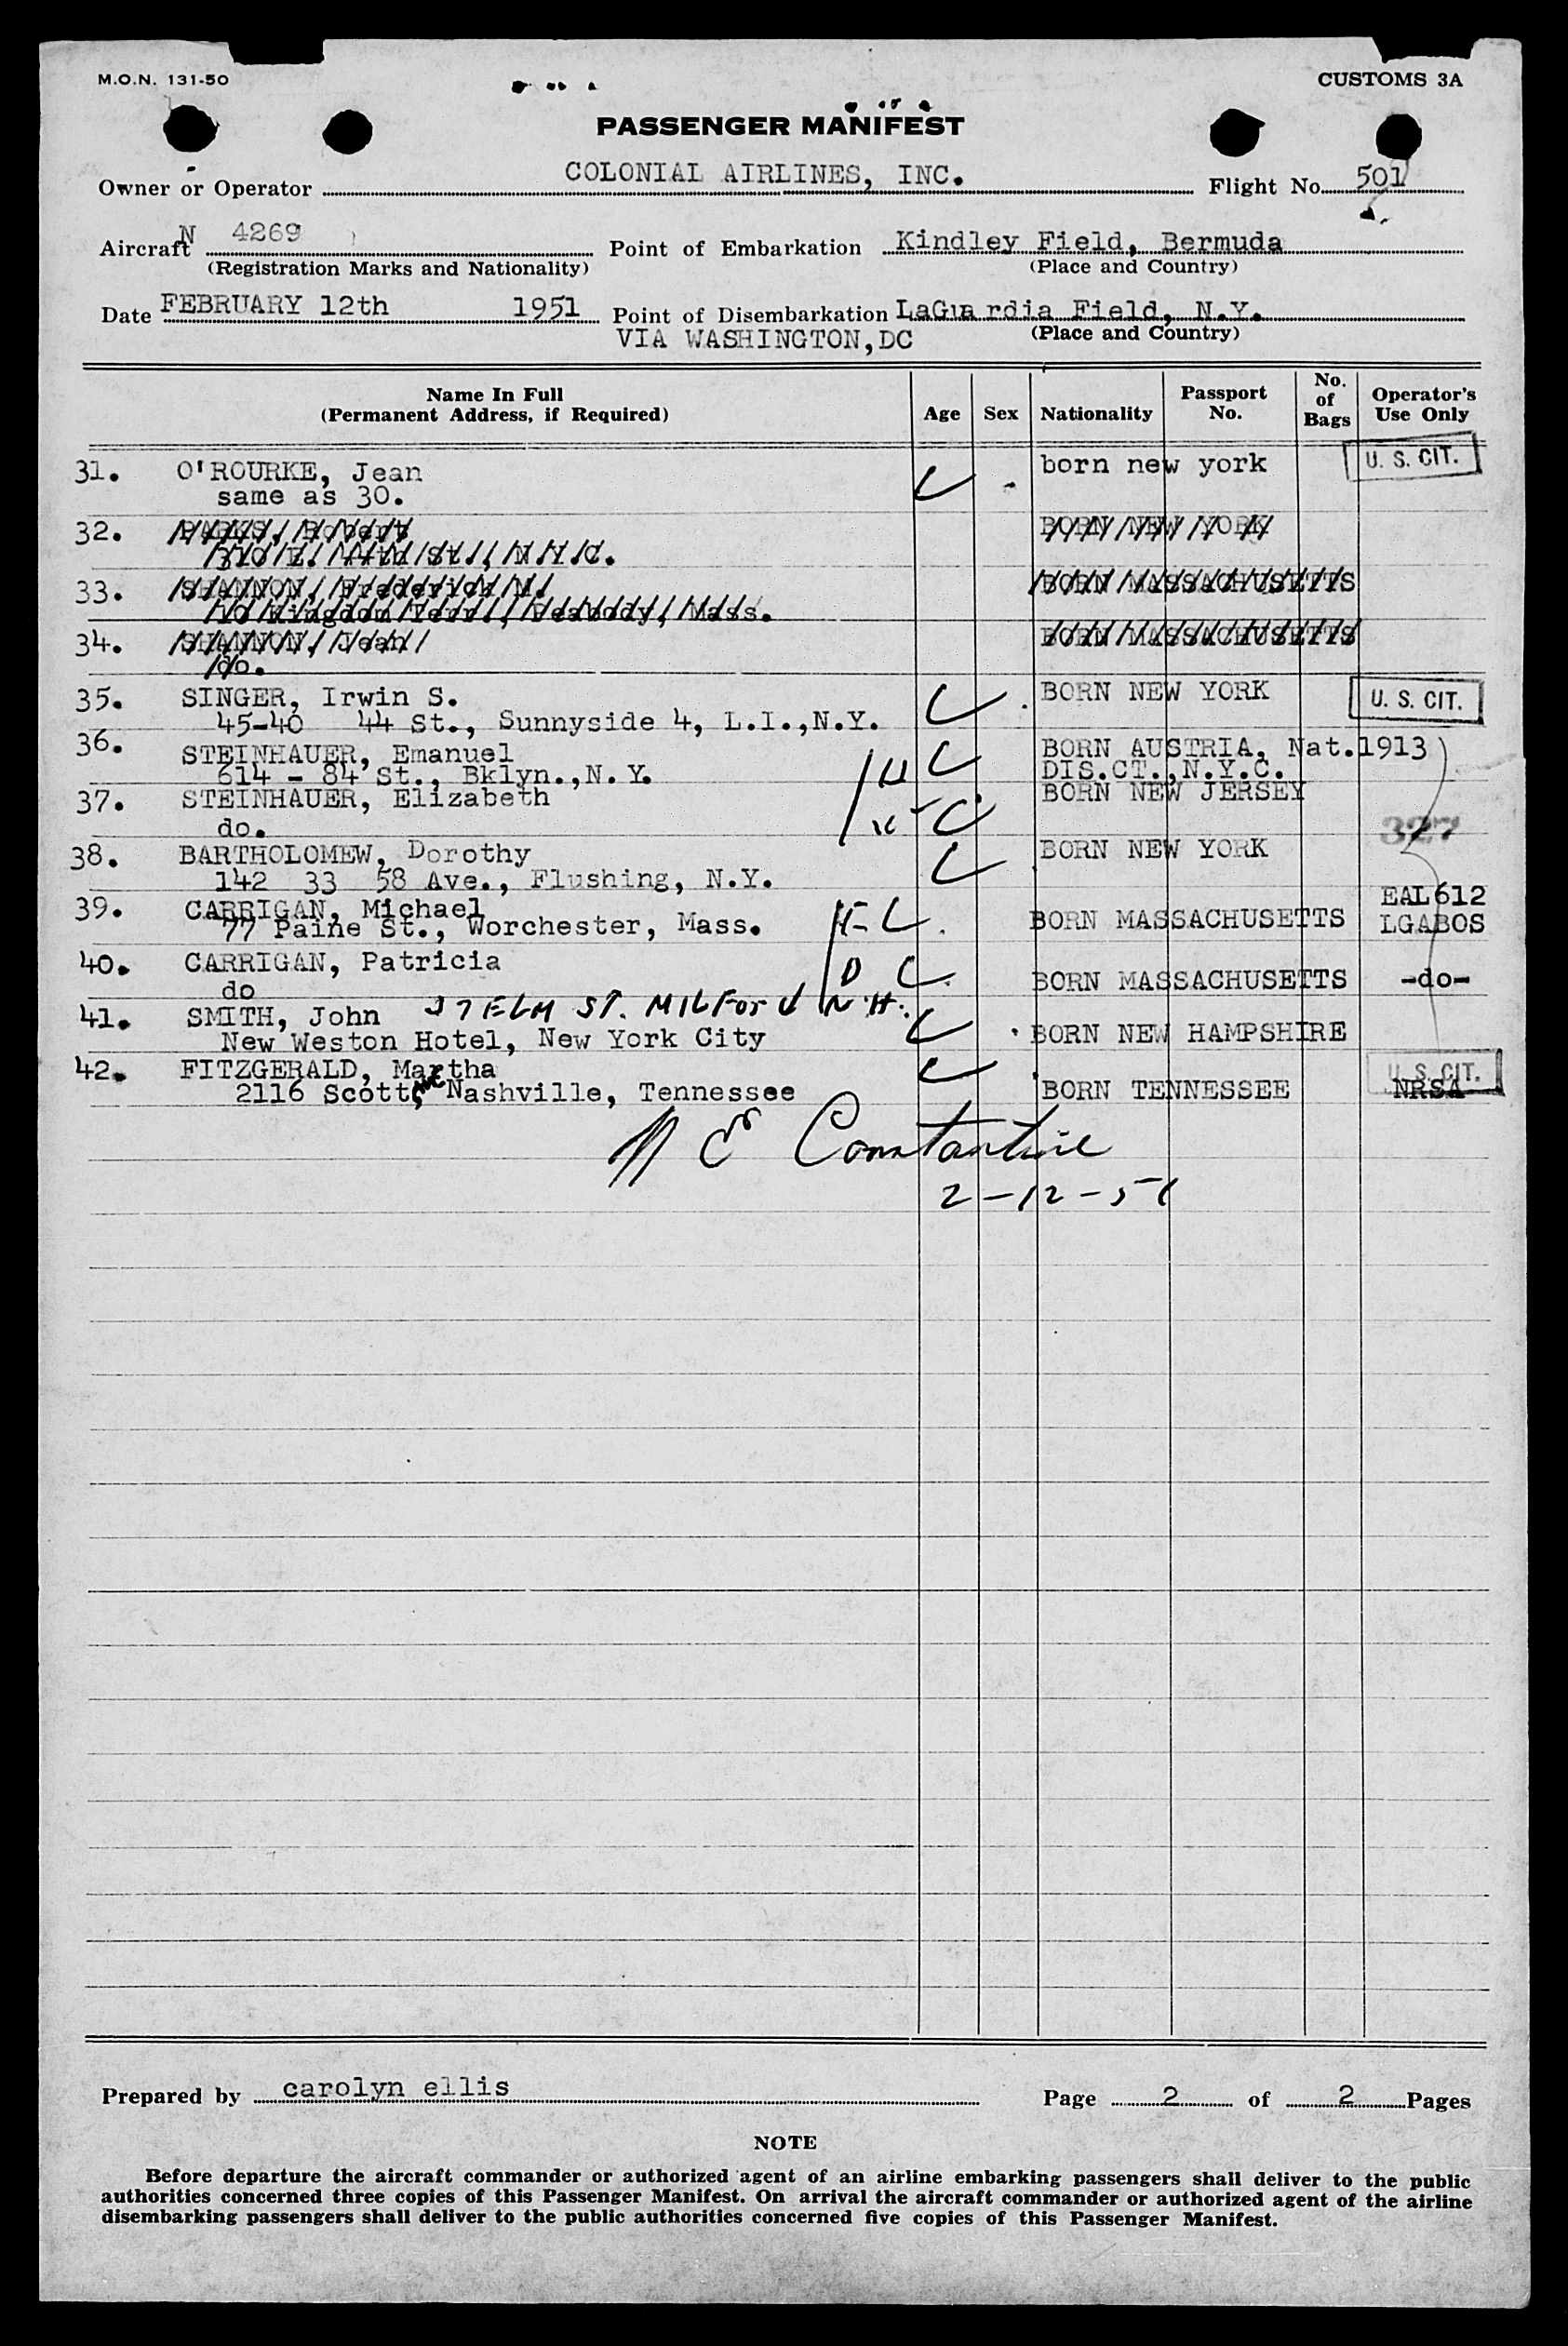 M.O.N. 131-50
CUSTOMS 3A
PASSENGER MANIFEST
Owner or Operator COLONIAL AIRLINES, INC. Flight No. 501
Aircraft N 4269 Point of Embarkation Kindley Field, Bermuda
(Registration Marks and Nationality) (Place and Country)
Date FEBRUARY 12th 1951 Point of Disembarkation LaGua rdia Field, N.Y.
VIA WASHINGTON,DC (Place and Country)
Name In Full (Permanent Address, if Required) Age Sex Nationality Passport No. No. of Bags Operator's Use Only
31. O'ROURKE, Jean born new york U. S. CIT.
same as 30.
32. Robert BORN NEW YORK
St., N.Y.C.
33. SHANNON, Frederick M. BORN MASSACHUSETTS
Kingdom Terr., Peabody, Mass.
34. SHANNON, Jean BORN MASSACHUSETTS
do.
35. SINGER, Irwin S. C BORN NEW YORK U. S. CIT.
45-40 44 St., Sunnyside 4, L.I.,N.Y.
36. STEINHAUER, Emanuel H C BORN AUSTRIA, Nat.1913
614 - 84 St., Bklyn.,N.Y. DIS.CT.,N.Y.C.
37. STEINHAUER, Elizabeth C BORN NEW JERSEY
do. 327
38. BARTHOLOMEW, Dorothy C BORN NEW YORK
142 33 58 Ave., Flushing, N.Y.
39. CARRIGAN, Michael C BORN MASSACHUSETTS EAL612
77 Paine St., Worchester, Mass. LGABOS
40. CARRIGAN, Patricia C BORN MASSACHUSETTS -do-
do
41. SMITH, John 37 ELM ST. MILFord N.H. C BORN NEW HAMPSHIRE
New Weston Hotel, New York City
42. FITZGERALD, Martha C U. S. CIT.
2116 Scott, AVE Nashville, Tennessee BORN TENNESSEE NRSA
N E Constantine
2-12-51
Prepared by carolyn ellis Page 2 of 2 Pages
NOTE
Before departure the aircraft commander or authorized agent of an airline embarking passengers shall deliver to the public
authorities concerned three copies of this Passenger Manifest. On arrival the aircraft commander or authorized agent of the airline
disembarking passengers shall deliver to the public authorities concerned five copies of this Passenger Manifest.